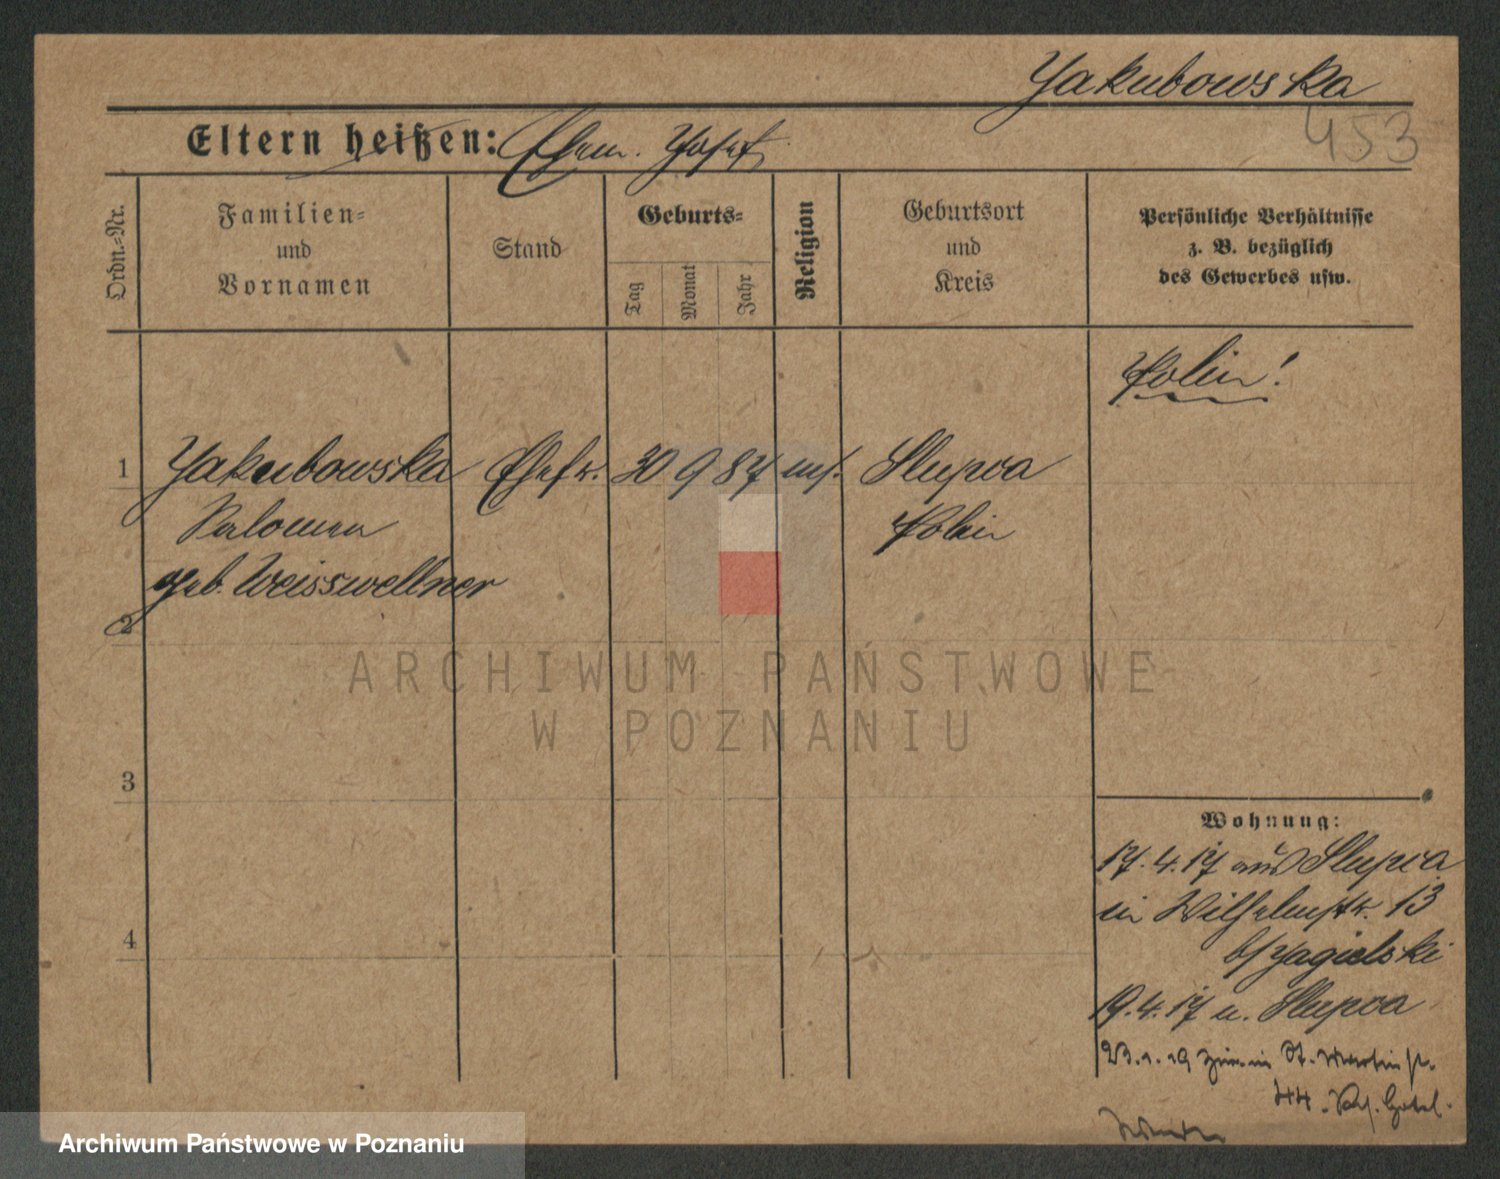 Yakubowska
453
Eltern heißen: Ehem. Josef
Ordn.-Nr.
Familien-
und
Vornamen
Stand
Geburts-
Tag
Monat
Jahr
Religion
Geburtsort
und
Kreis
Persönliche Verhältnisse
z. B. bezüglich
des Gewerbes usw.
Polin!
1 Yakubowska Ehefr. 30 9 87 Slupca
Salomea Polen
geb. Weisswellner
2
ARCHIWUM PAŃSTWOWE
W POZNANIU
3
Wohnung:
17.4.17 aus Slupca
in Wilhelmstr. 13
b/Yagielski
4
19.4.17 n. Slupca
23.1.19 in St. Martinstr.
44.
Archiwum Państwowe w Poznaniu